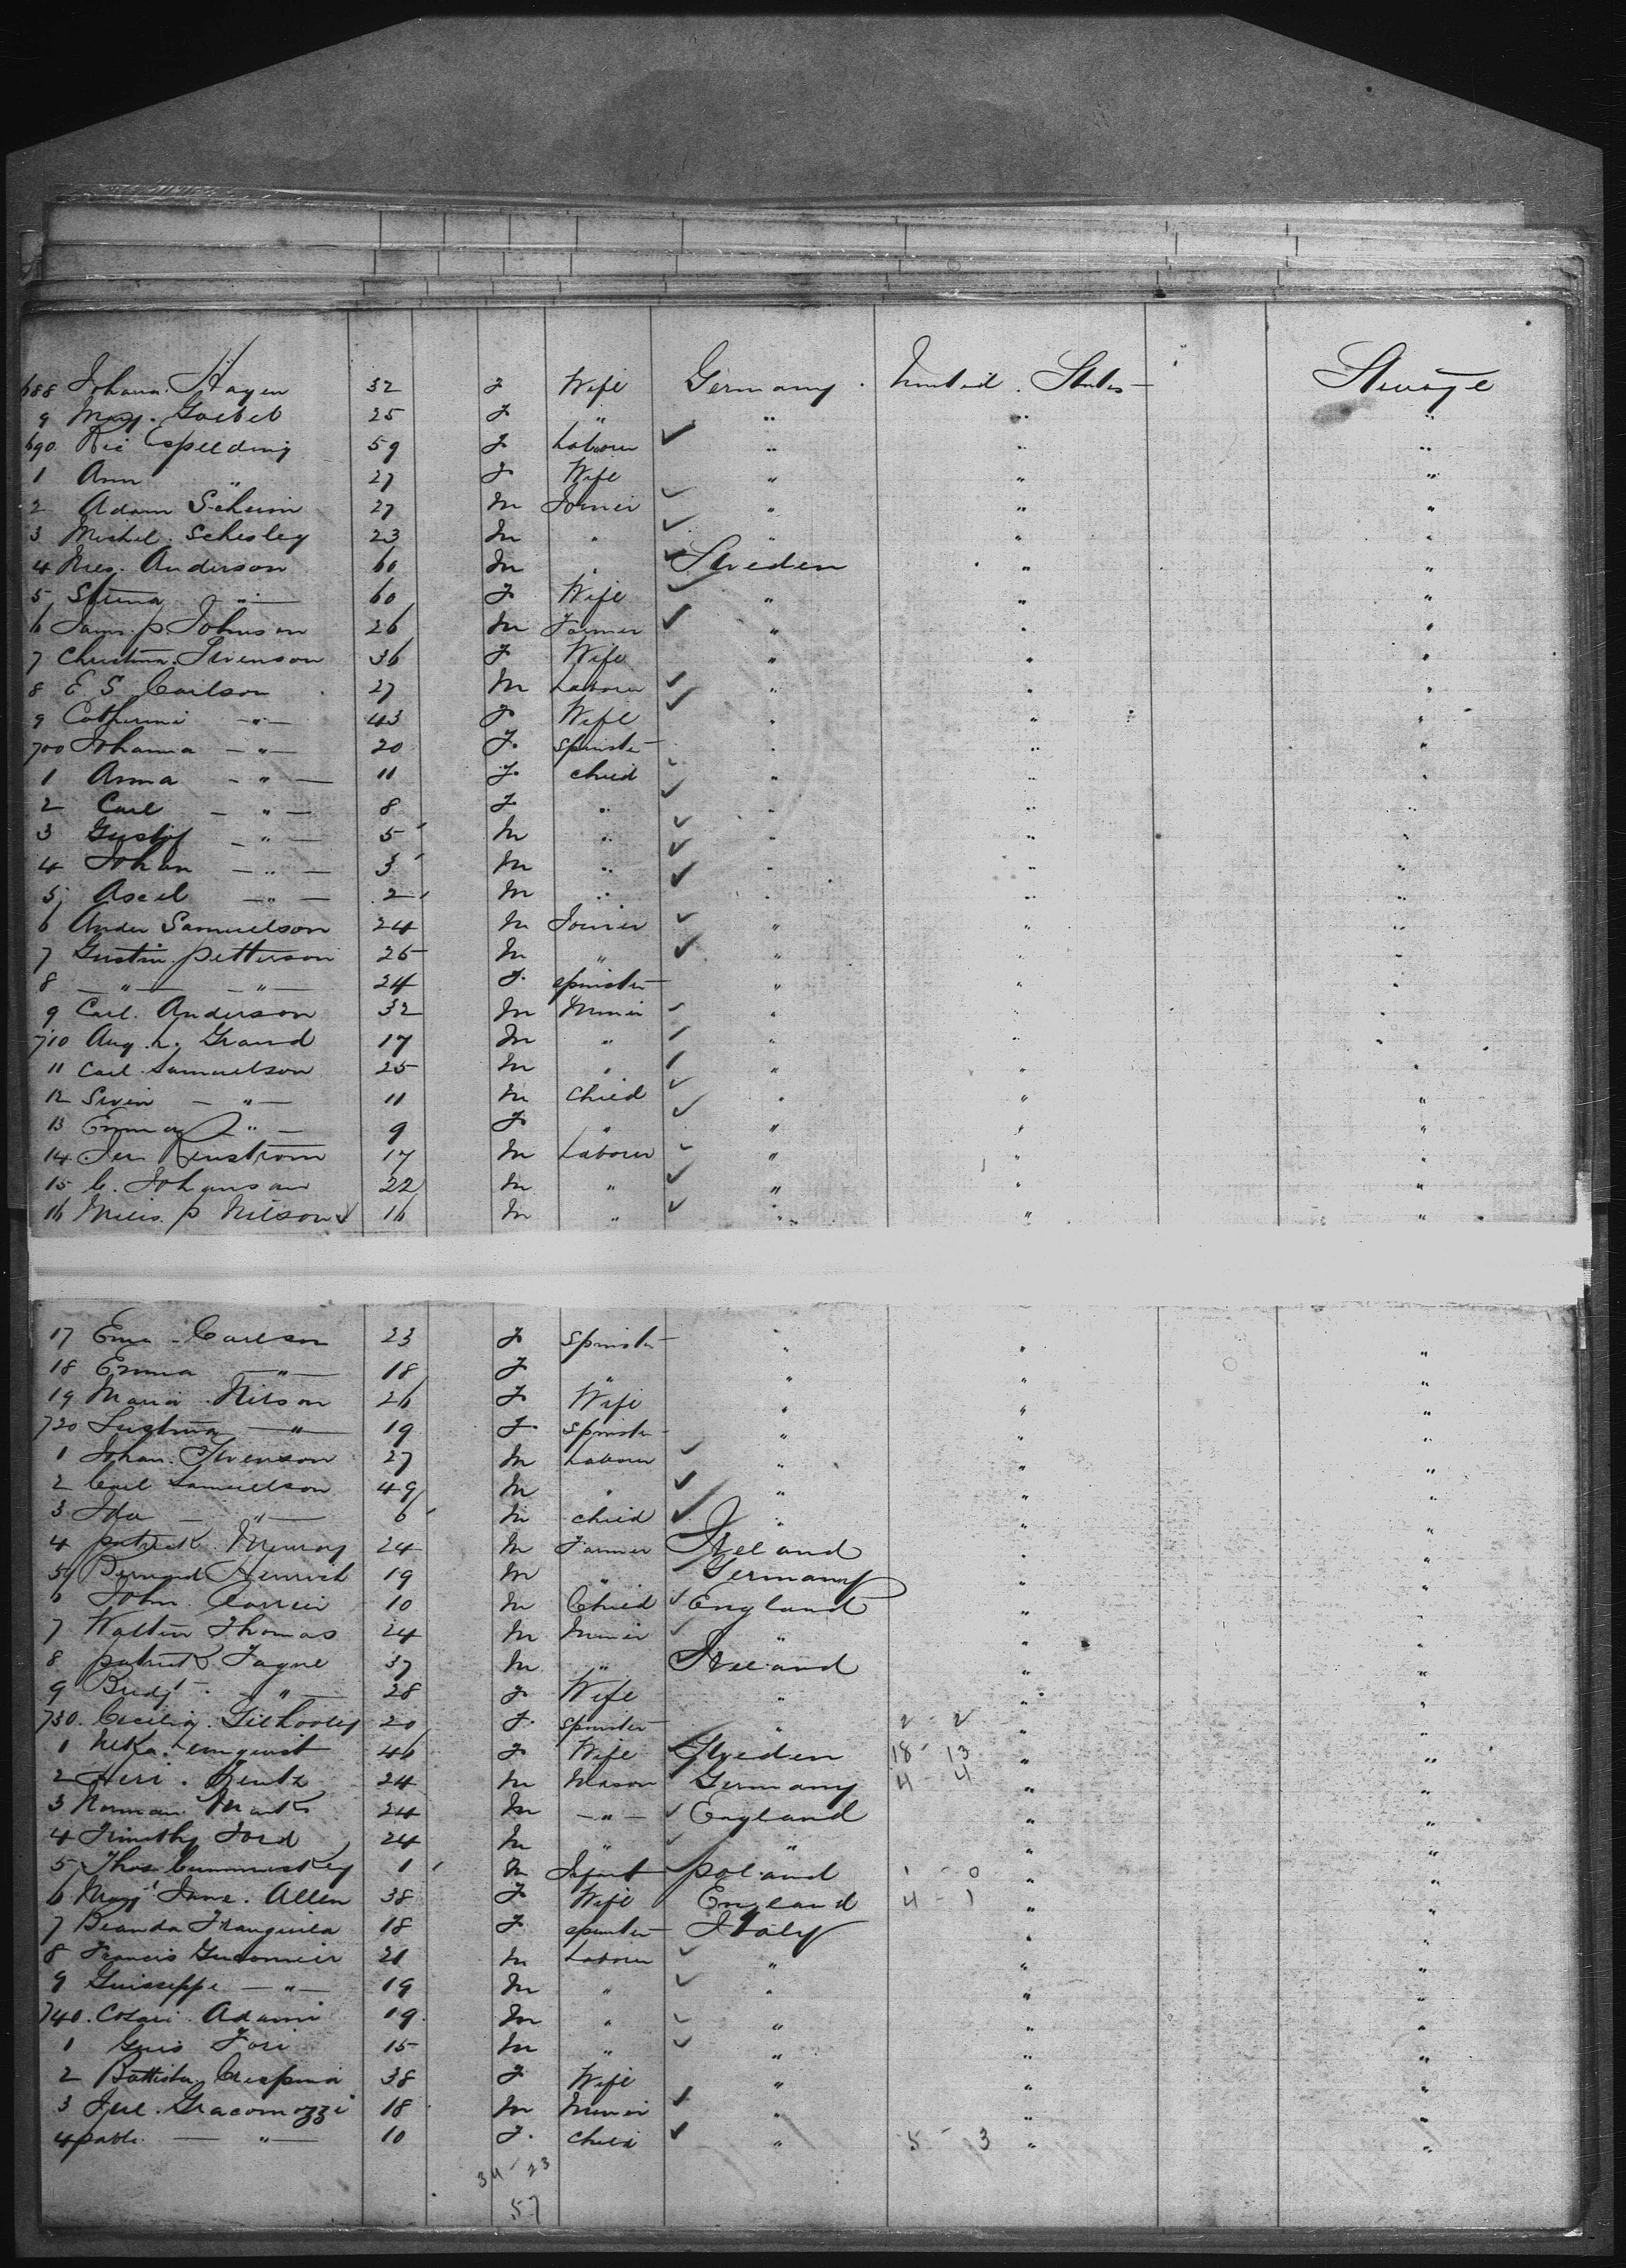 688 Johana Hagen 32 F Wife Germany United States Steerage
9 Mary Goebel 25 F " " " "
690 Ric Espelding 59 F Laborer ✓ " " "
1 Ann " 27 F Wife " " "
2 Adam Scheim 27 M Joiner ✓ " " "
3 Michel Schesley 23 M " ✓ " " "
4 Anderson 60 M " ✓ Sweden " "
5 Stina " 60 F Wife ✓ " " "
6 p Johnson 26 M Farmer ✓ " " "
7 Christina Svenson 36 F Wife " " "
8 E S Carlson 27 M Laborer ✓ " " "
9 Catherine " 43 F Wife ✓ " " "
700 Johanna " 20 F Spinster " " "
1 Anna " 11 F child ✓ " " "
2 Carl " 8 F " ✓ " " "
3 Gustof " 5 M " ✓ " " "
4 Johan " 3 M " ✓ " " "
5 Axel " 2 M " ✓ " " "
6 Ander Samuelson 24 M Joiner ✓ " " "
7 Gustin petterson 25 M " ✓ " " "
8 " " 24 F spinster " " "
9 Carl Anderson 32 M Miner ✓ " " "
710 Aug. Grand 17 M " ✓ " " "
11 Carl Samuelson 25 M " ✓ " " "
12 Sven " 11 M child ✓ " " "
13 Emma " 9 F " ✓ " " "
14 Renstrom 17 M Laborer ✓ " " "
15 C. Johanson 22 M " ✓ " " "
16 p Nilson 16 M " ✓ " " "
17 Ema Carlson 23 F Spinster " " "
18 Emma " 18 F " " " "
19 Maria Nilson 26 F Wife " " "
720 " 19 F Spinster " " "
1 Johan Svenson 27 M Laborer ✓ " " "
2 Carl Samuelson 49 M " ✓ " " "
3 Ida " 6 M child ✓ " " "
4 patrick Murray 24 M Farmer Ireland " "
5 Bernard Henrich 19 M " Germany " "
6 John 10 M Child ✓ England " "
7 Walter Thomas 24 M Miner ✓ " " "
8 patrick Fagne 37 M " Ireland " "
9 Bridjt " 28 F Wife " " "
730 Cecilia Gilhooley 20 F spinster " 2 - 2 " "
1 46 F Wife Sweden 18 - 13 " "
2 24 M Mason Germany 4 - 4 " "
3 Norman Mark 24 M " ✓ England " "
4 Timothy Ford 24 M " ✓ " " "
5 Thos Cummuskey 1 M Infant poland 1 - 0 " "
6 Mary Jane Allen 38 F Wife England 4 - 1 " "
7 Beanda Tranquila 18 F spinster Italy " "
8 Francis 21 M Laborer ✓ " " "
9 Guisseppe " 19 M " ✓ " " "
740 Cesari Adami 19 M " ✓ " " "
1 Guis Fori 15 M " ✓ " " "
2 Battista Crespina 38 F Wife " " "
3 Gracomozzi 18 M Miner ✓ " " "
4 " 10 F child ✓ " 5 - 3 " "
34 - 23
57